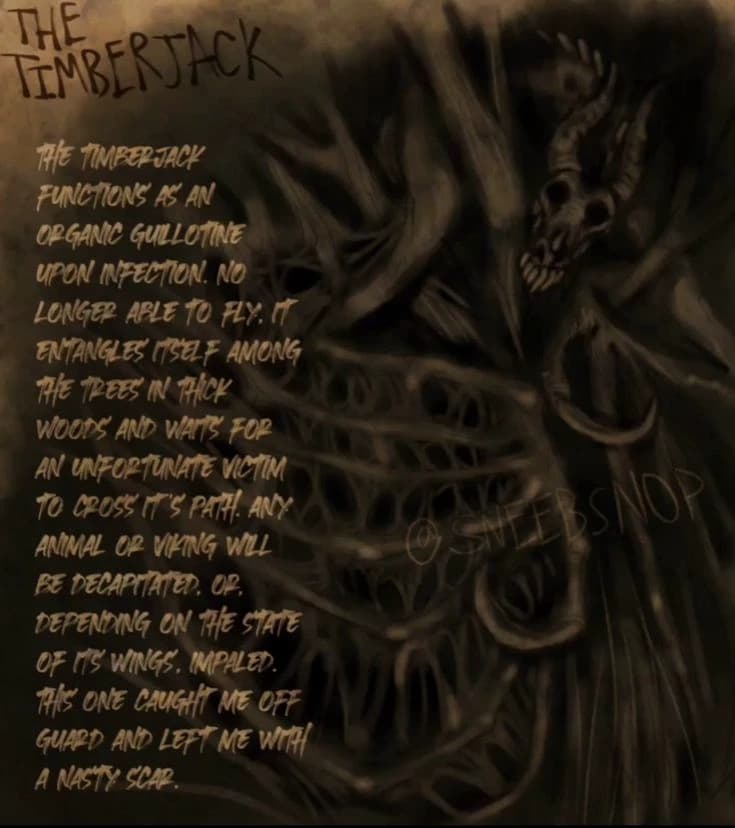 THE
TIMBERJACK
THE TIMBERJACK
FUNCTIONS AS AN
ORGANIC GUILLOTINE
UPON INFECTION. NO
LONGER ABLE TO FLY, IT
ENTANGLES ITSELF AMONG
THE TREES IN THICK
WOODS AND WAITS FOR
AN UNFORTUNATE VICTIM
TO CROSS IT'S PATH. ANY
ANIMAL OR VIKING WILL
BE DECAPITATED, OR,
DEPENDING ON THE STATE
OF ITS WINGS, IMPALED.
THIS ONE CAUGHT ME OFF
GUARD AND LEFT ME WITH
A NASTY SCAR.
@SNEEBSNOP